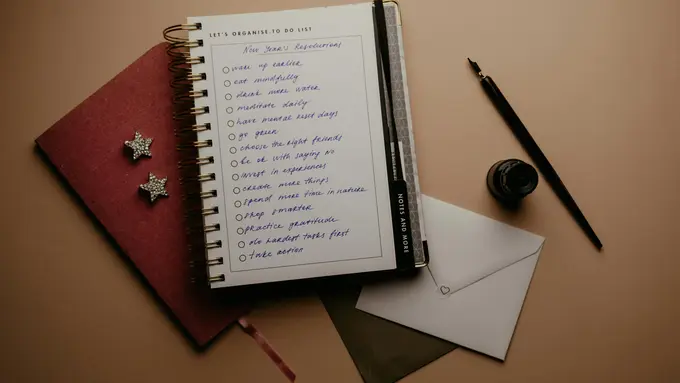 LET'S ORGANISE-TO DO LIST
New Year's Resolutions
wake up earlier
eat mindfully
drink more water
meditate daily
have mental reset days
go green
choose the right friends
be ok with saying No
invest in experiences
create more things
spend more time in nature
shop smarter
practice gratitude
do hardest tasks first
take action
NOTES AND MORE